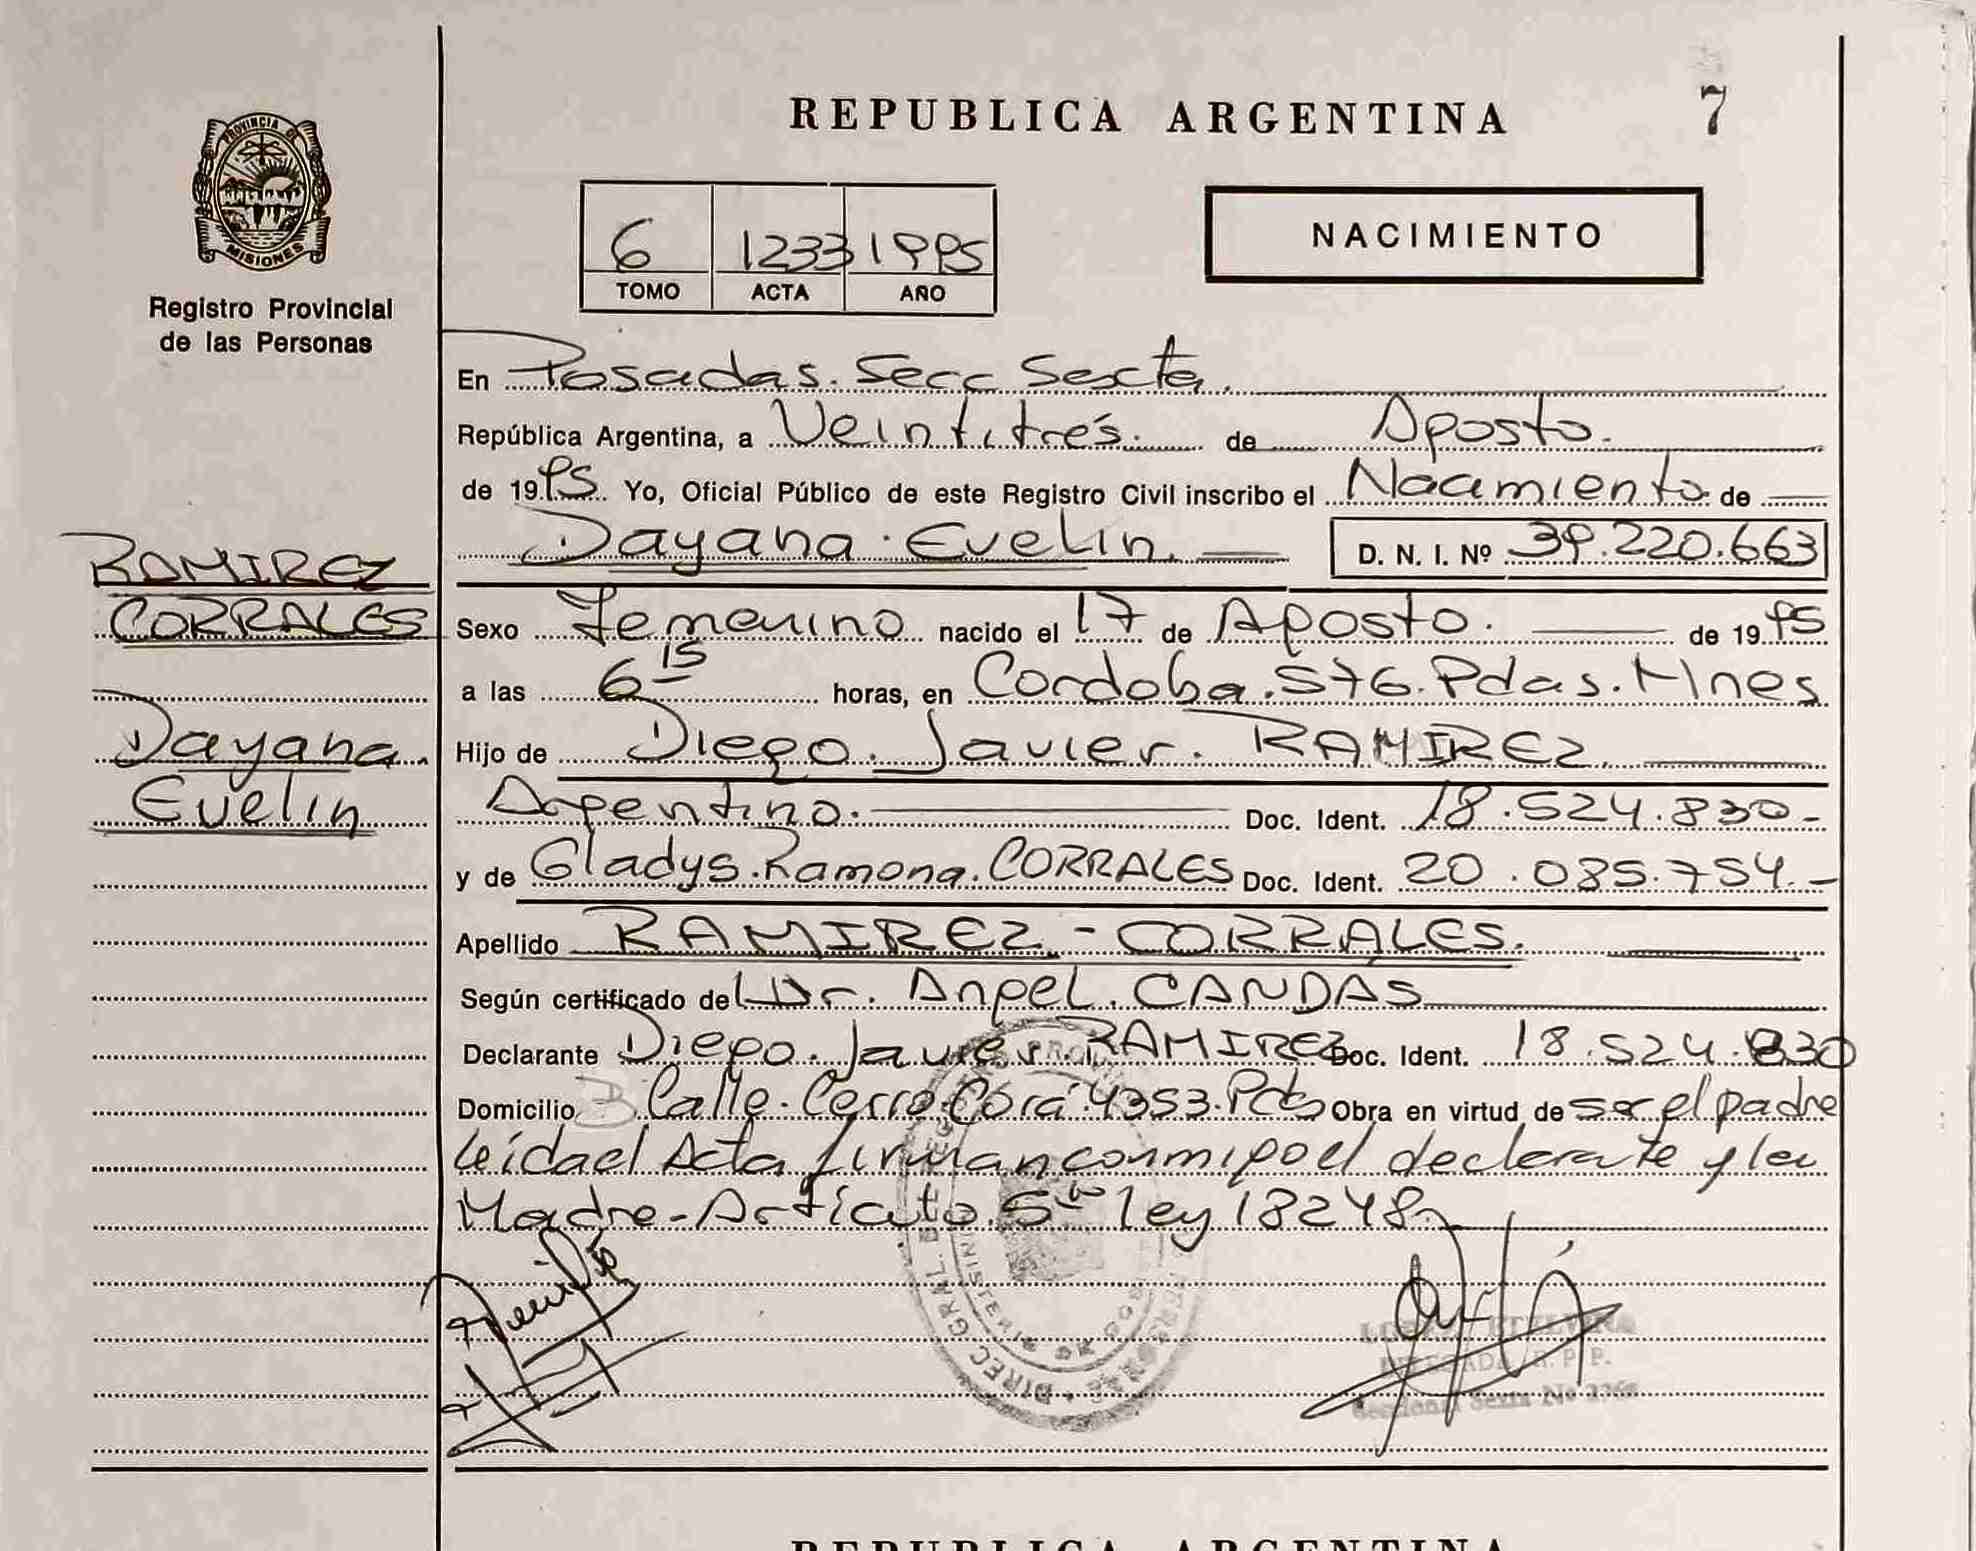 REPUBLICA ARGENTINA
7
PROVINCIA DE
MISIONES
Registro Provincial
de las Personas
6 1233 1995
TOMO ACTA AÑO
NACIMIENTO
En Posadas. Secc Sexta.
República Argentina, a Veintitrés. de Agosto.
de 1995. Yo, Oficial Público de este Registro Civil inscribo el Nacimiento de
Dayana Evelin. D. N. I. Nº 39.220.663
RAMIREZ
CORRALES
Dayana
Evelin
Sexo Femenino nacido el 17 de Agosto. de 1995
a las 6 15 horas, en Cordoba. 576. Pdas. Mnes
Hijo de Diego. Javier. RAMIREZ.
Argentino. Doc. Ident. 18.524.830-
y de Gladys. Ramona. CORRALES Doc. Ident. 20.085.754.-
Apellido RAMIREZ - CORRALES.
Según certificado del Dr. Angel. CANDAS
Declarante Diego. Javier. RAMIREZ Doc. Ident. 18.524.830
Domicilio Calle. Cerro. Corá. 4353. Pds Obra en virtud de ser el padre
leida el Acta firman conmigo el declarante y la
Madre-Articulo 5to ley 18248.
DIREC. GRAL. DE
MINISTERIO DE GOB
DELEGADA R. P. P.
Seccional Sexta Nº
REPUBLICA ARGENTINA